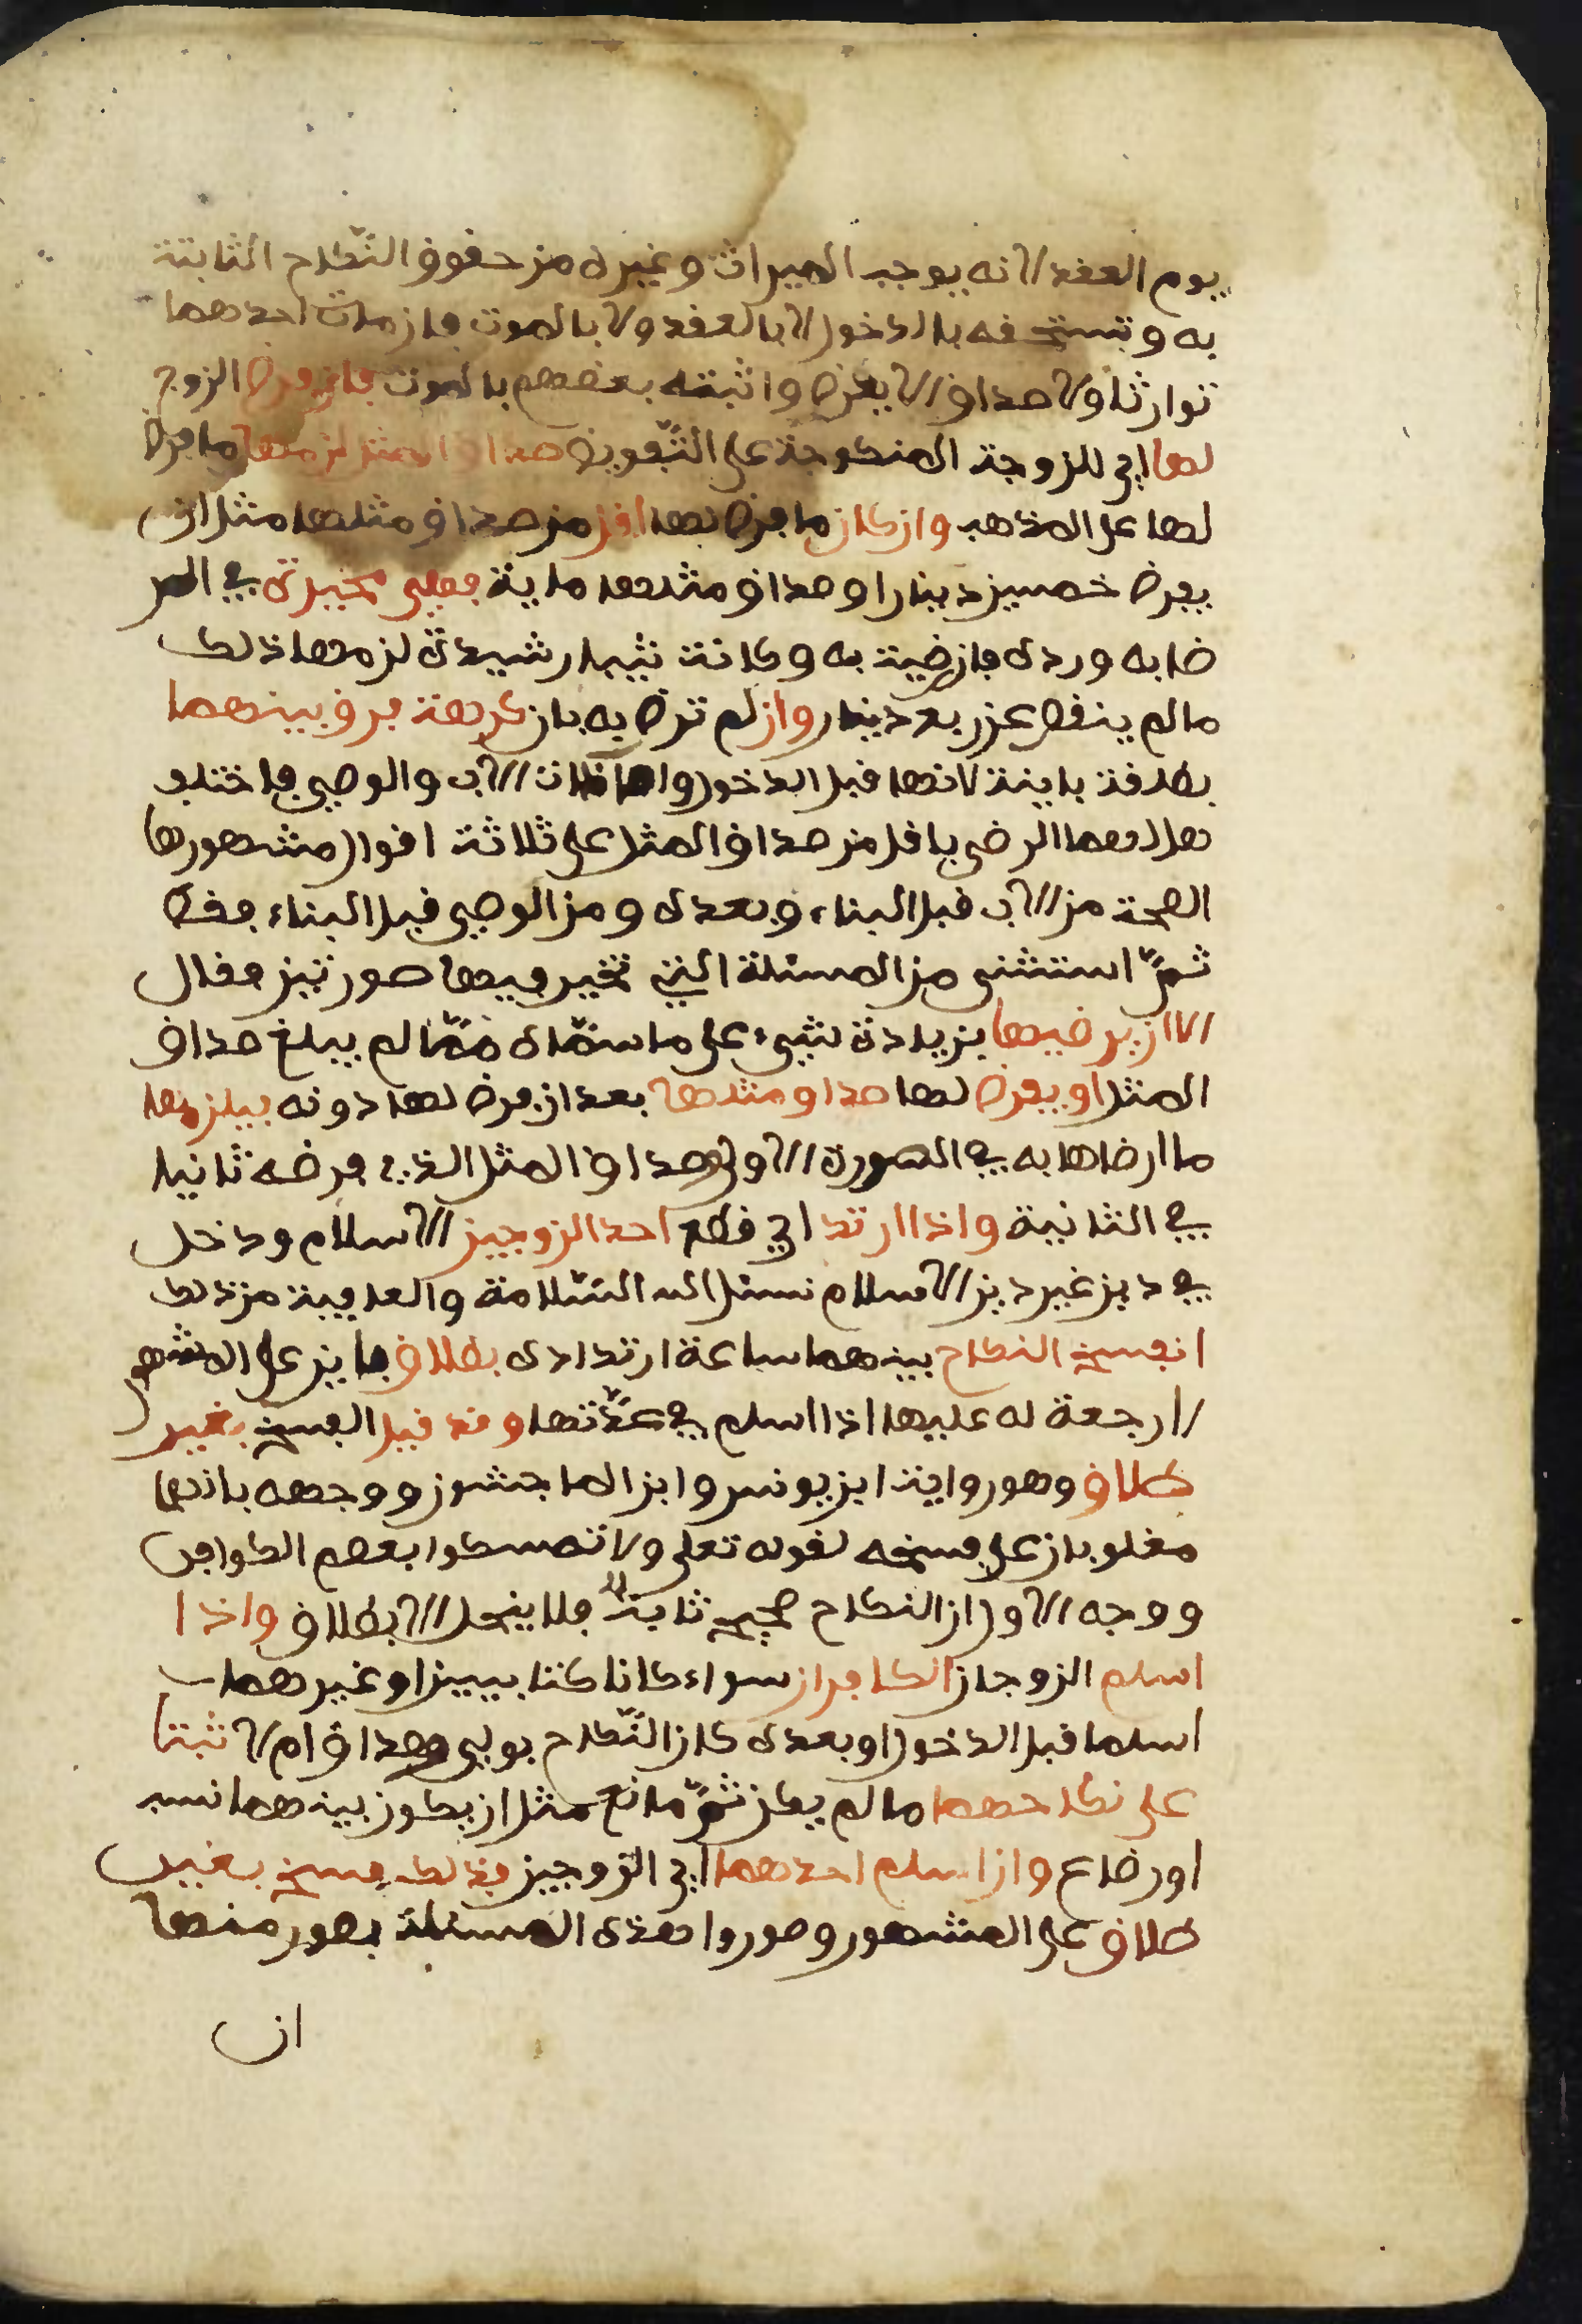 يوم العقد لانه يوجب الميراث وغيره من حقوق النّكاح الثابتة
به وتستحقه بالدخول لا بالعقد ولا بالموت فان مات احدهما
توارثا ولا صداق الا بفرض واثبته بعضهم بالموت فان فرض الزوج
لها اي للزوجة المنكوحة على التّفويض صداق المثل لزمها ما فرض
لها على المذهب وان كان ما فرض لها اقل من صداق مثلها مثل ان
يفرض خمسين دينارا وصداق مثلها ماية فهي مخيرة في الر
ضا به ورده فان رضيت به وكانت ثيبا رشيدة لزمها ذلك
ما لم ينقص عن ربع دينار وان لم ترض به بان كرهته فرق بينهما
بطلقة باينة لانها قبل الدخول واما ذات الاب والوصي فاختلف
هل لهما الرضى باقل من صداق المثل على ثلاثة اقوال مشهورها
الصحة من الاب قبل البناء وبعده ومن الوصي قبل البناء فقط
ثمّ استثنى من المسئلة التي تخير فيها صورتين فقال
الا ان يرضيها بزيادة شيء على ما سمّاه ممّا لم يبلغ صداق
المثل او يفرض لها صداق مثلها بعد ان فرض لها دونه فيلزمها
ما ارضاها به في الصورة الاولى وصداق المثل الذي فرضه ثانيا
في الثانية واذا ارتد اي قطع احد الزوجين الاسلام ودخل
في دين غير دين الاسلام نسئل الله السّلامة والعافية من ذلك
انفسخ النكاح بينهما ساعة ارتداده بطلاق باين على المشهو
لا رجعة له عليها اذا اسلم في عدّتها وقد قيل الفسخ بغير
طلاق وهو رواية ابن يونس وابن الماجشون ووجهه بانهما
مغلوبان على فسخه لقوله تعلى ولا تمسكوا بعصم الكوافر
ووجه الاول ان النكاح صحيح ثابت فلا ينحل الا بطلاق واذا
اسلم الزوجان الكافران سواء كانا كتابيين او غيرهما
اسلما قبل الدخول او بعده كان النّكاح بولي وصداق ام لا ثبتا
على نكاحهما ما لم يكن ثمّ مانع مثل ان يكون بينهما نسب
او رضاع وان اسلم احدهما اي الزوجين فذلك فسخ بغير
طلاق على المشهور وصوروا هذه المسئلة بصور منها
ان